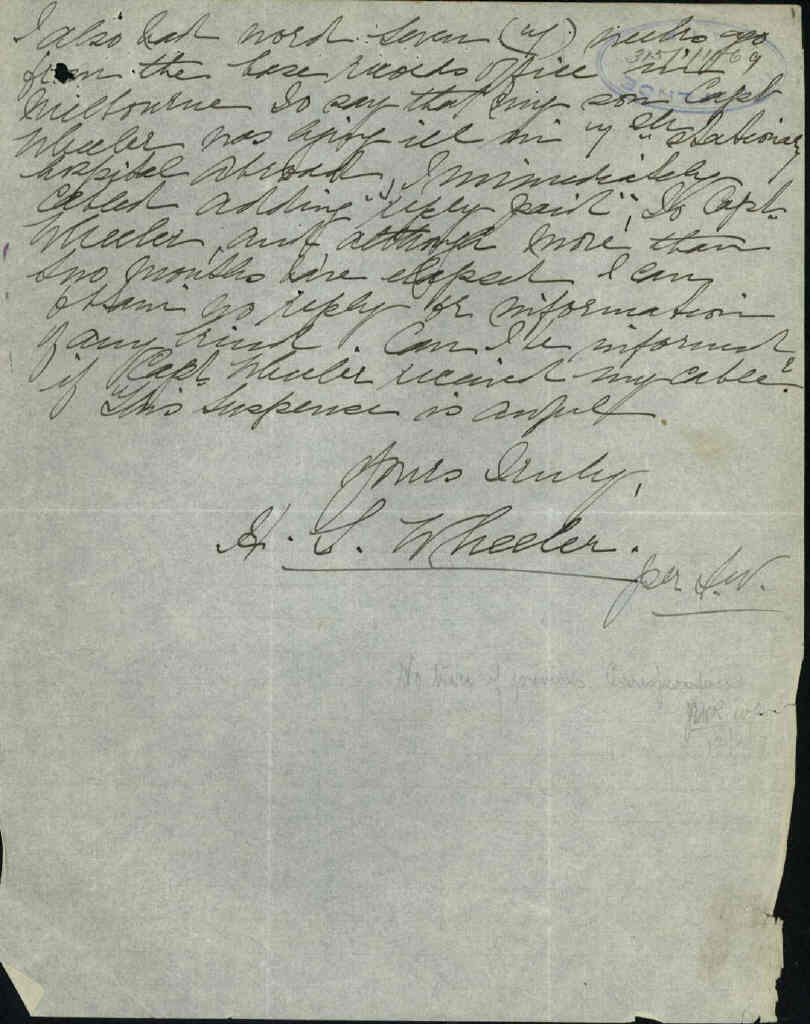 I also had word seven (7) weeks ago
from the base records office in
Melbourne to say that my son Capt
Wheeler was lying ill in 7th Stationary
hospital abroad, I immediately
cabled adding "reply paid", to Capt.
Wheeler, and although more than
two months have elapsed I can
obtain no reply or information
of any kind. Can I be informed
if Capt Wheeler received my cable?
This suspense is awful
Yours Truly,
H. S. Wheeler.
per S.W.
No trace of previous Correspondence